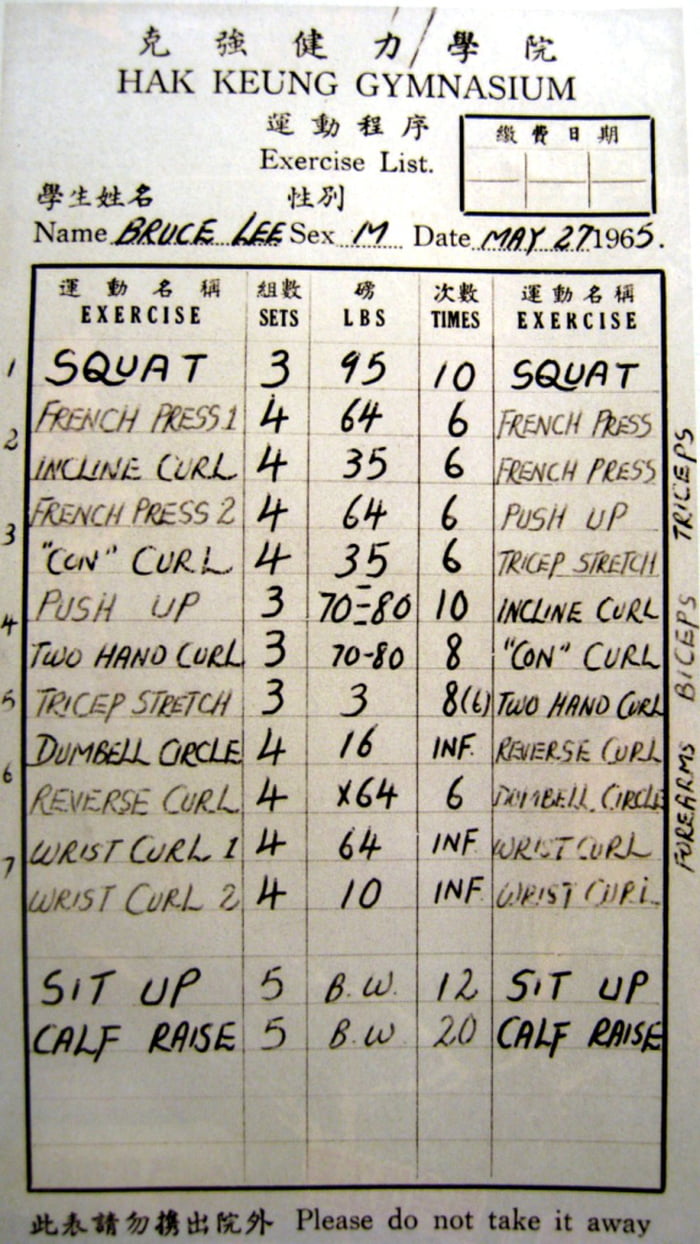 克強健力學院
HAK KEUNG GYMNASIUM
運動程序
Exercise List.
繳費日期
學生姓名 性別
Name BRUCE LEE Sex M Date MAY 27 1965.
運動名稱 組數 磅 次數 運動名稱
EXERCISE SETS LBS TIMES EXERCISE
1 SQUAT 3 95 10 SQUAT
FRENCH PRESS 1 4 64 6 FRENCH PRESS
2
INCLINE CURL 4 35 6 FRENCH PRESS
FRENCH PRESS 2 4 64 6 PUSH UP
3
"CON" CURL 4 35 6 TRICEP STRETCH
PUSH UP 3 70-80 10 INCLINE CURL
4
TWO HAND CURL 3 70-80 8 "CON" CURL
5 TRICEP STRETCH 3 3 8(6) TWO HAND CURL
DUMBELL CIRCLE 4 16 INF. REVERSE CURL
6
REVERSE CURL 4 X64 6 DUMBELL CIRCLE
WRIST CURL 1 4 64 INF WRIST CURL
7
WRIST CURL 2 4 10 INF WRIST CURL
SIT UP 5 B.W. 12 SIT UP
CALF RAISE 5 B.W 20 CALF RAISE
TRICEPS
BICEPS
FOREARMS
此表請勿携出院外 Please do not take it away